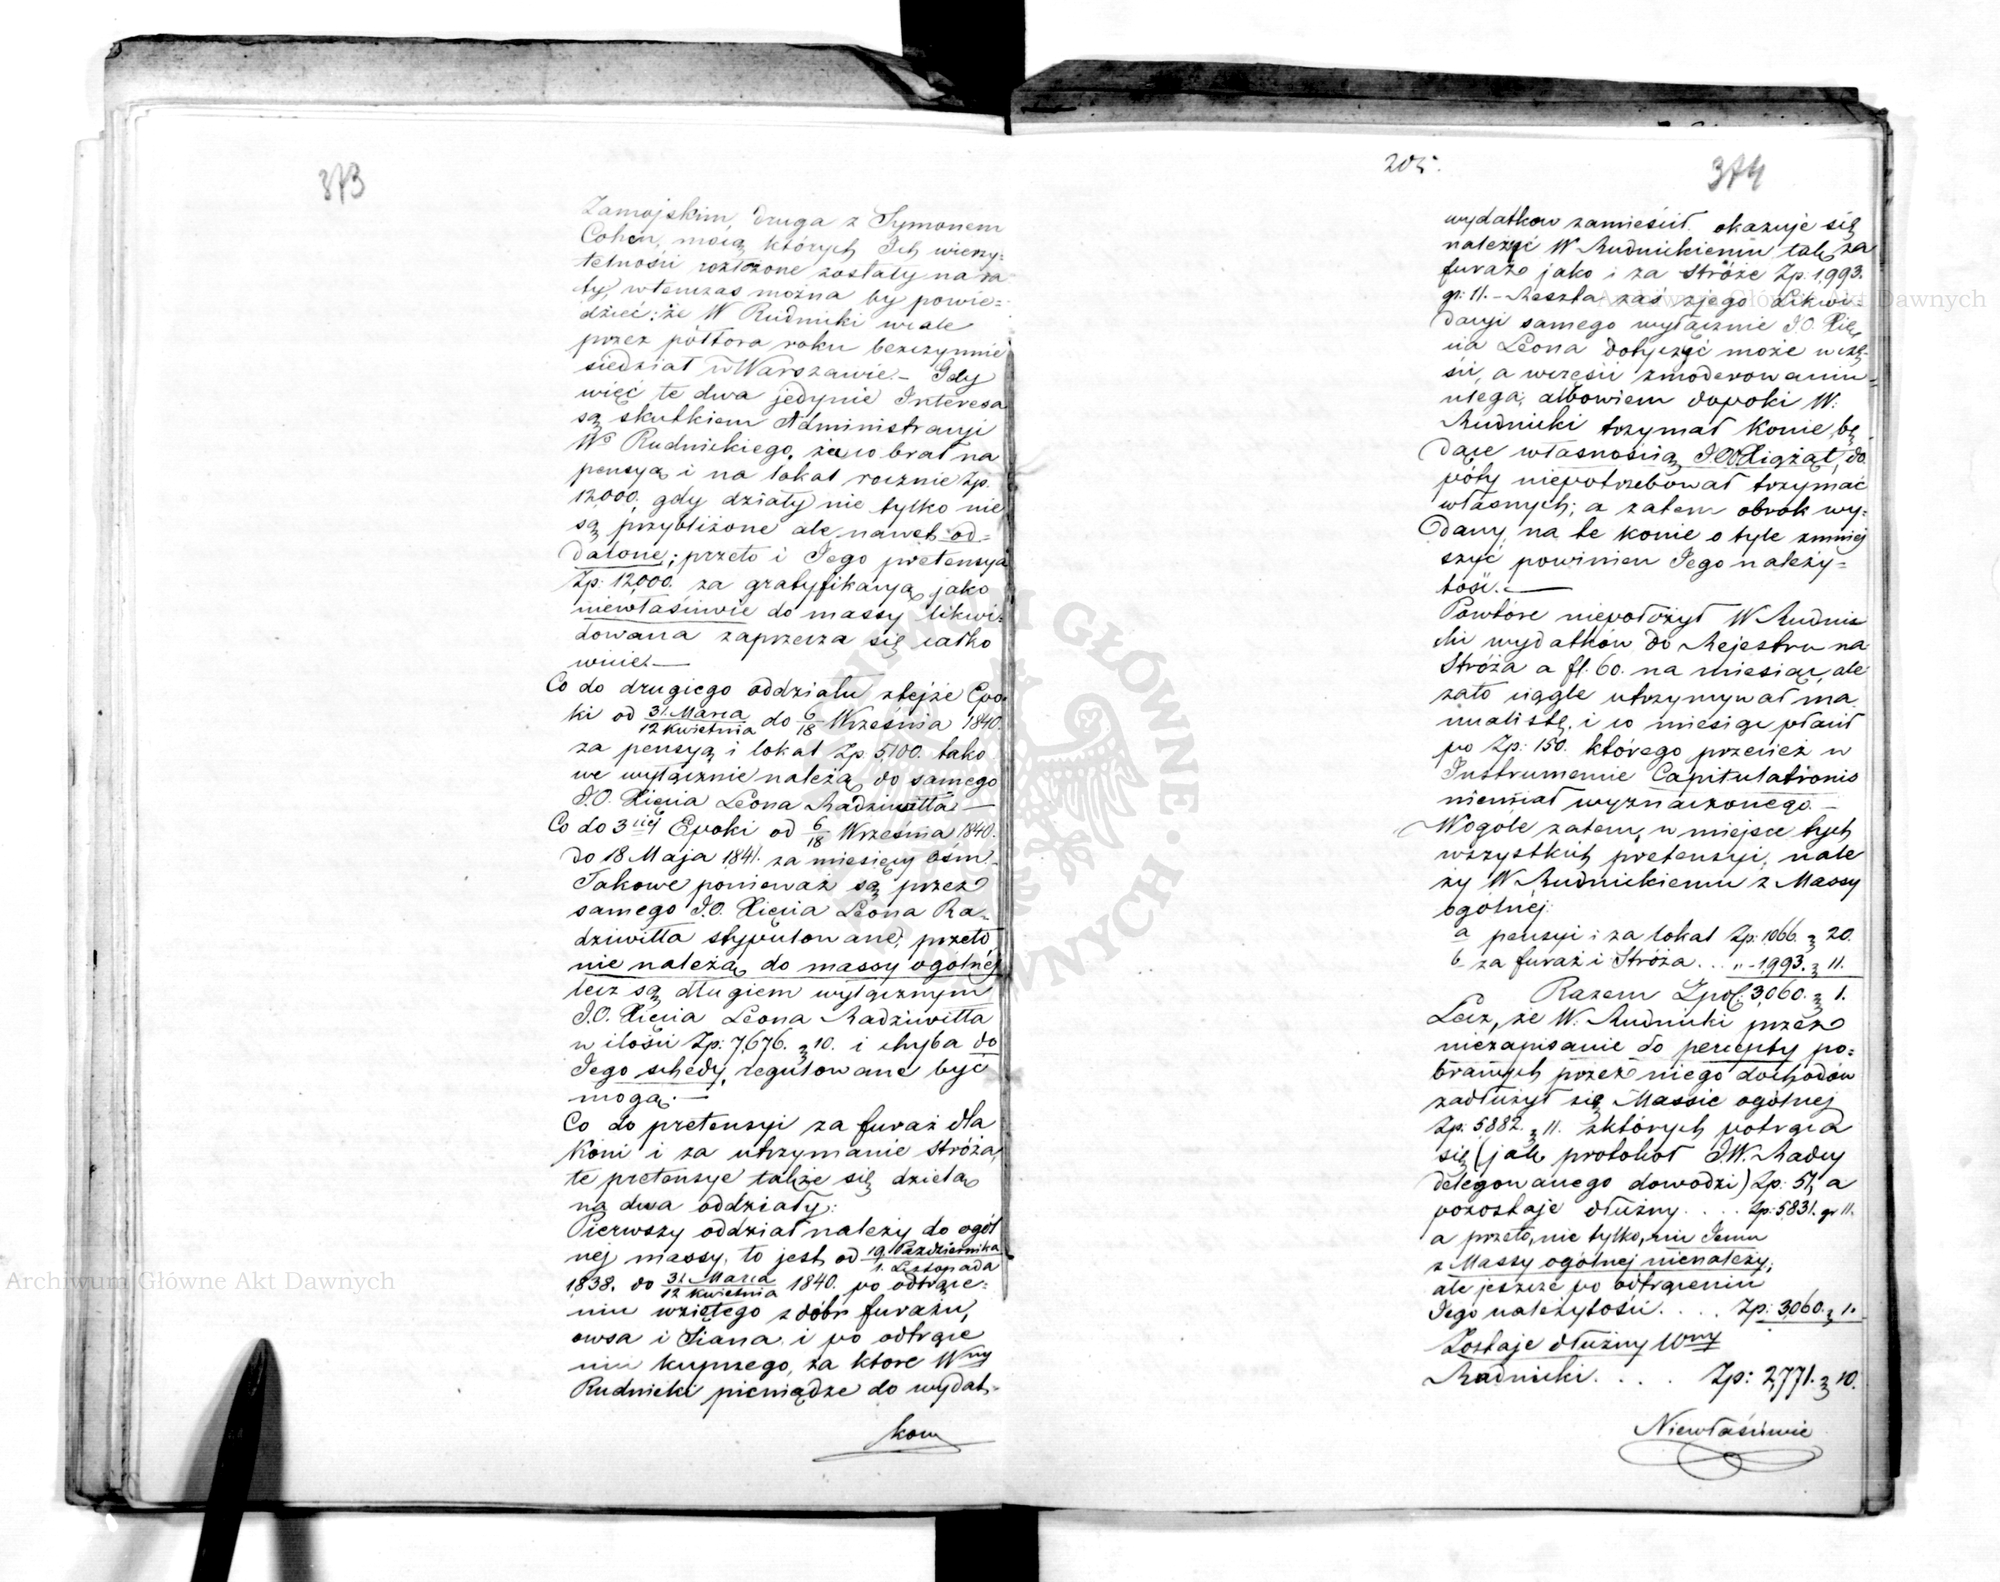 373
Zamojskim, druga z Symonem
Cohen, mocą których Ich wierzy-
telności rozłożone zostały na ra
ty, wtenczas można by powie=
dzieć: że W Rudnicki wcale
przez półtora roku bezczynnie
siedział w Warszawie. – Gdy
więć te dwa jedynie Interesa
są skutkiem Administracyi
Wo Rudnickiego, za co brał na
pensyą i na lokal rocznie Zp.
12,000, gdy działy nie tylko nie
są przybliżone ale nawet od=
dalone; przeto i Jego pretensya
Zp: 12,000. za gratyfikacyą, jako
niewłaściwie do massy likwi-
dowana zaprzecza się całko
wicie. —
Co do drugiego oddziału tejże Epo
ki od 31. Marca / 12 Kwietnia do 6/18 Września 1840.
za pensyą i lokal Zp. 5,100. tako
we wyłącznie należą do samego
J.O. Xięcia Leona Radziwiłła —
Co do 3ciej Epoki od 6/18 Września 1840.
do 18 Maja 1841. za miesięcy ośm
Takowe ponieważ są przez
samego J.O. Xięcia Leona Ra-
dziwiłła stypulowane, przeto
nie należą do massy ogólnéj
lecz są długiem wyłącznym
J.O. Xięcia Leona Radziwiłła
w ilości Zp: 7,676. g 10. i chyba do
Jego schedy, regulowane być
mogą. —
Co do pretensyi za furaż dla
Koni i za utrzymanie Stróża,
te pretensye także się dzielą
na dwa oddziały:
Pierwszy oddział należy do ogól
nej massy, to jest od 19. Października / 1. Listopada
1838. do 31. Marca / 12 Kwietnia 1840. po odtrące=
niu wziętego z dóbr furażu,
owsa i Siana, i po odtrące
niu kupnego, za ktore Wny
Rudnicki pieniądze do wydat-
kow
205.
374
wydatkow zamieścił, okazuje się
należyć W Rudnickiemu tak za
furaż jako i za Stróże Zp: 1,993.
gr: 11. – Reszta zaś z jego Likwi-
dacyi samego wyłącznie J.O. Xię
cia Leona dotyczyć może w czę-
ści, a w części zmoderowaniu
ulega, albowiem dopoki W:
Rudnicki trzymał Konie, bę
dące własnością J.O. Xiążąt, do
póty niepotrzebował trzymać
własnych; a zatem obrok wy-
dany, na te konie o tyle zmniej
szyć powinien Jego należy=
tość. —
Powtóre niepołożył W Rudnic
ki wydatków do Rejestru na
Stróża a fl. 60. na miesiąc, ale
zato ciągle utrzymywał ma
nualistę, i co miesiąc płacił
po Zp: 150. którego przecież w
Instrumencie Capitulationis
niemiał wyznaczonego. —
Wogóle zatem, w miejsce tych
wszystkich pretensyi, nale
ży W Rudnickiemu z Massy
ogólnej:
a pensyi i za lokal Zp: 1066. g 20.
b za furaż i Stróża . . . „ – 1,993. g 11.
Razem Zpol: 3,060. g 1.
Lecz, że W: Rudnicki przez
niezapisanie do percepty po=
branych przez niego dochodów
zadłużył się Massie ogólnej
Zp: 5882. g 11. z których potrąca
się (jak protokoł J.W. Radcy
delegowanego dowodzi) Zp: 51, a
pozostaje dłużny . . . . Zp: 5,831. gr 11.
a przeto, nie tylko, nic Jemu
z Massy ogólnej nienależy;
ale jeszcze po odtrąceniu
Jego należytości . . . . Zp: 3,060. g 1.
Zostaje dłużny Wny
Rudnicki . . . . Zp: 2,771. g 10.
Niewłaściwie
Archiwum Główne Akt Dawnych
Archiwum Główne Akt Dawnych